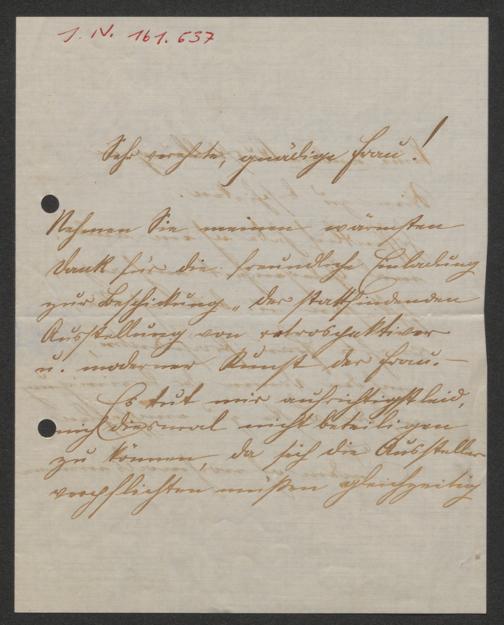 J. N. 161.637
Sehr verehrte, gnädige Frau!
Nehmen Sie meinen wärmsten
Dank für die freundliche Einladung
zur Beschickung „der stattfindenden
Ausstellung von retrospektiver
u. moderner Kunst der Frau.–
Es tut mir aufrichtigst leid,
mich diesmal nicht beteiligen
zu können, da sich die Aussteller
verpflichten müßen gleichzeitig